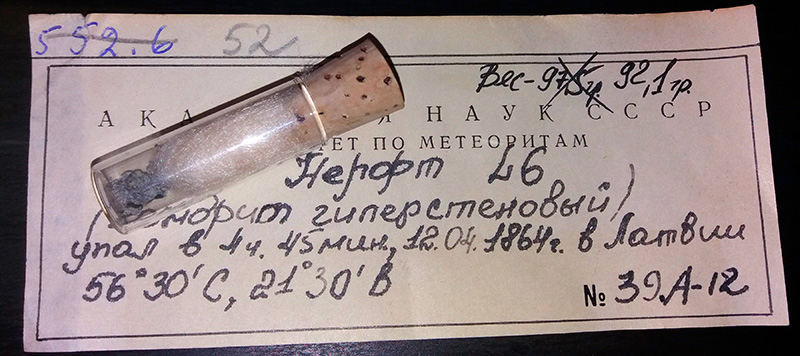 552.6 52
Вес-97,5г. 92,1 гр.
АКА Я НАУК СССР
ЕТ ПО МЕТЕОРИТАМ
Нерфт L6
(хондрит гиперстеновый)
упал в 4ч. 45мин., 12.04.1864г. в Латвии
56°30'С, 21°30'В
№ 39.А-12